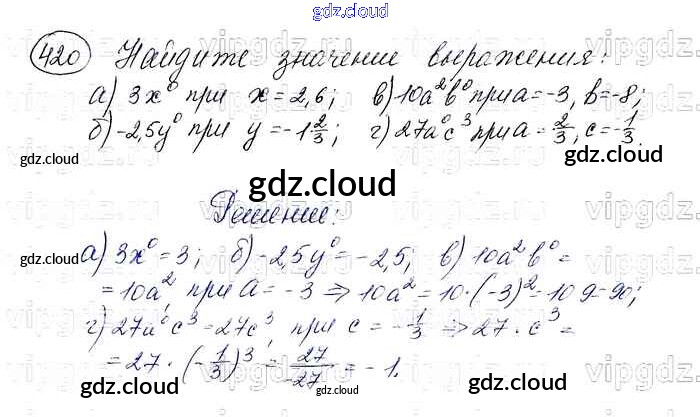 gdz.cloud
420 Найдите значение выражения:
а) 3x⁰ при x=2,6; в) 10a²b⁰ при a=-3, b=-8;
б) -2,5y⁰ при y=-1 2/3; г) 27a⁰c³ при a=2/3, c=-1/3.
gdz.cloud gdz.cloud
gdz.cloud
Решение:
а) 3x⁰=3; б) -2,5y⁰=-2,5; в) 10a²b⁰=
gdz.cloud gdz.cloud
=10a², при a=-3 ⇒ 10a²=10·(-3)²=10·9=90;
г) 27a⁰c³=27c³, при c=-1/3 ⇒ 27·c³=
=27·(-1/3)³=27/-27=-1.
gdz.cloud gdz.cloud
gdz.cloud